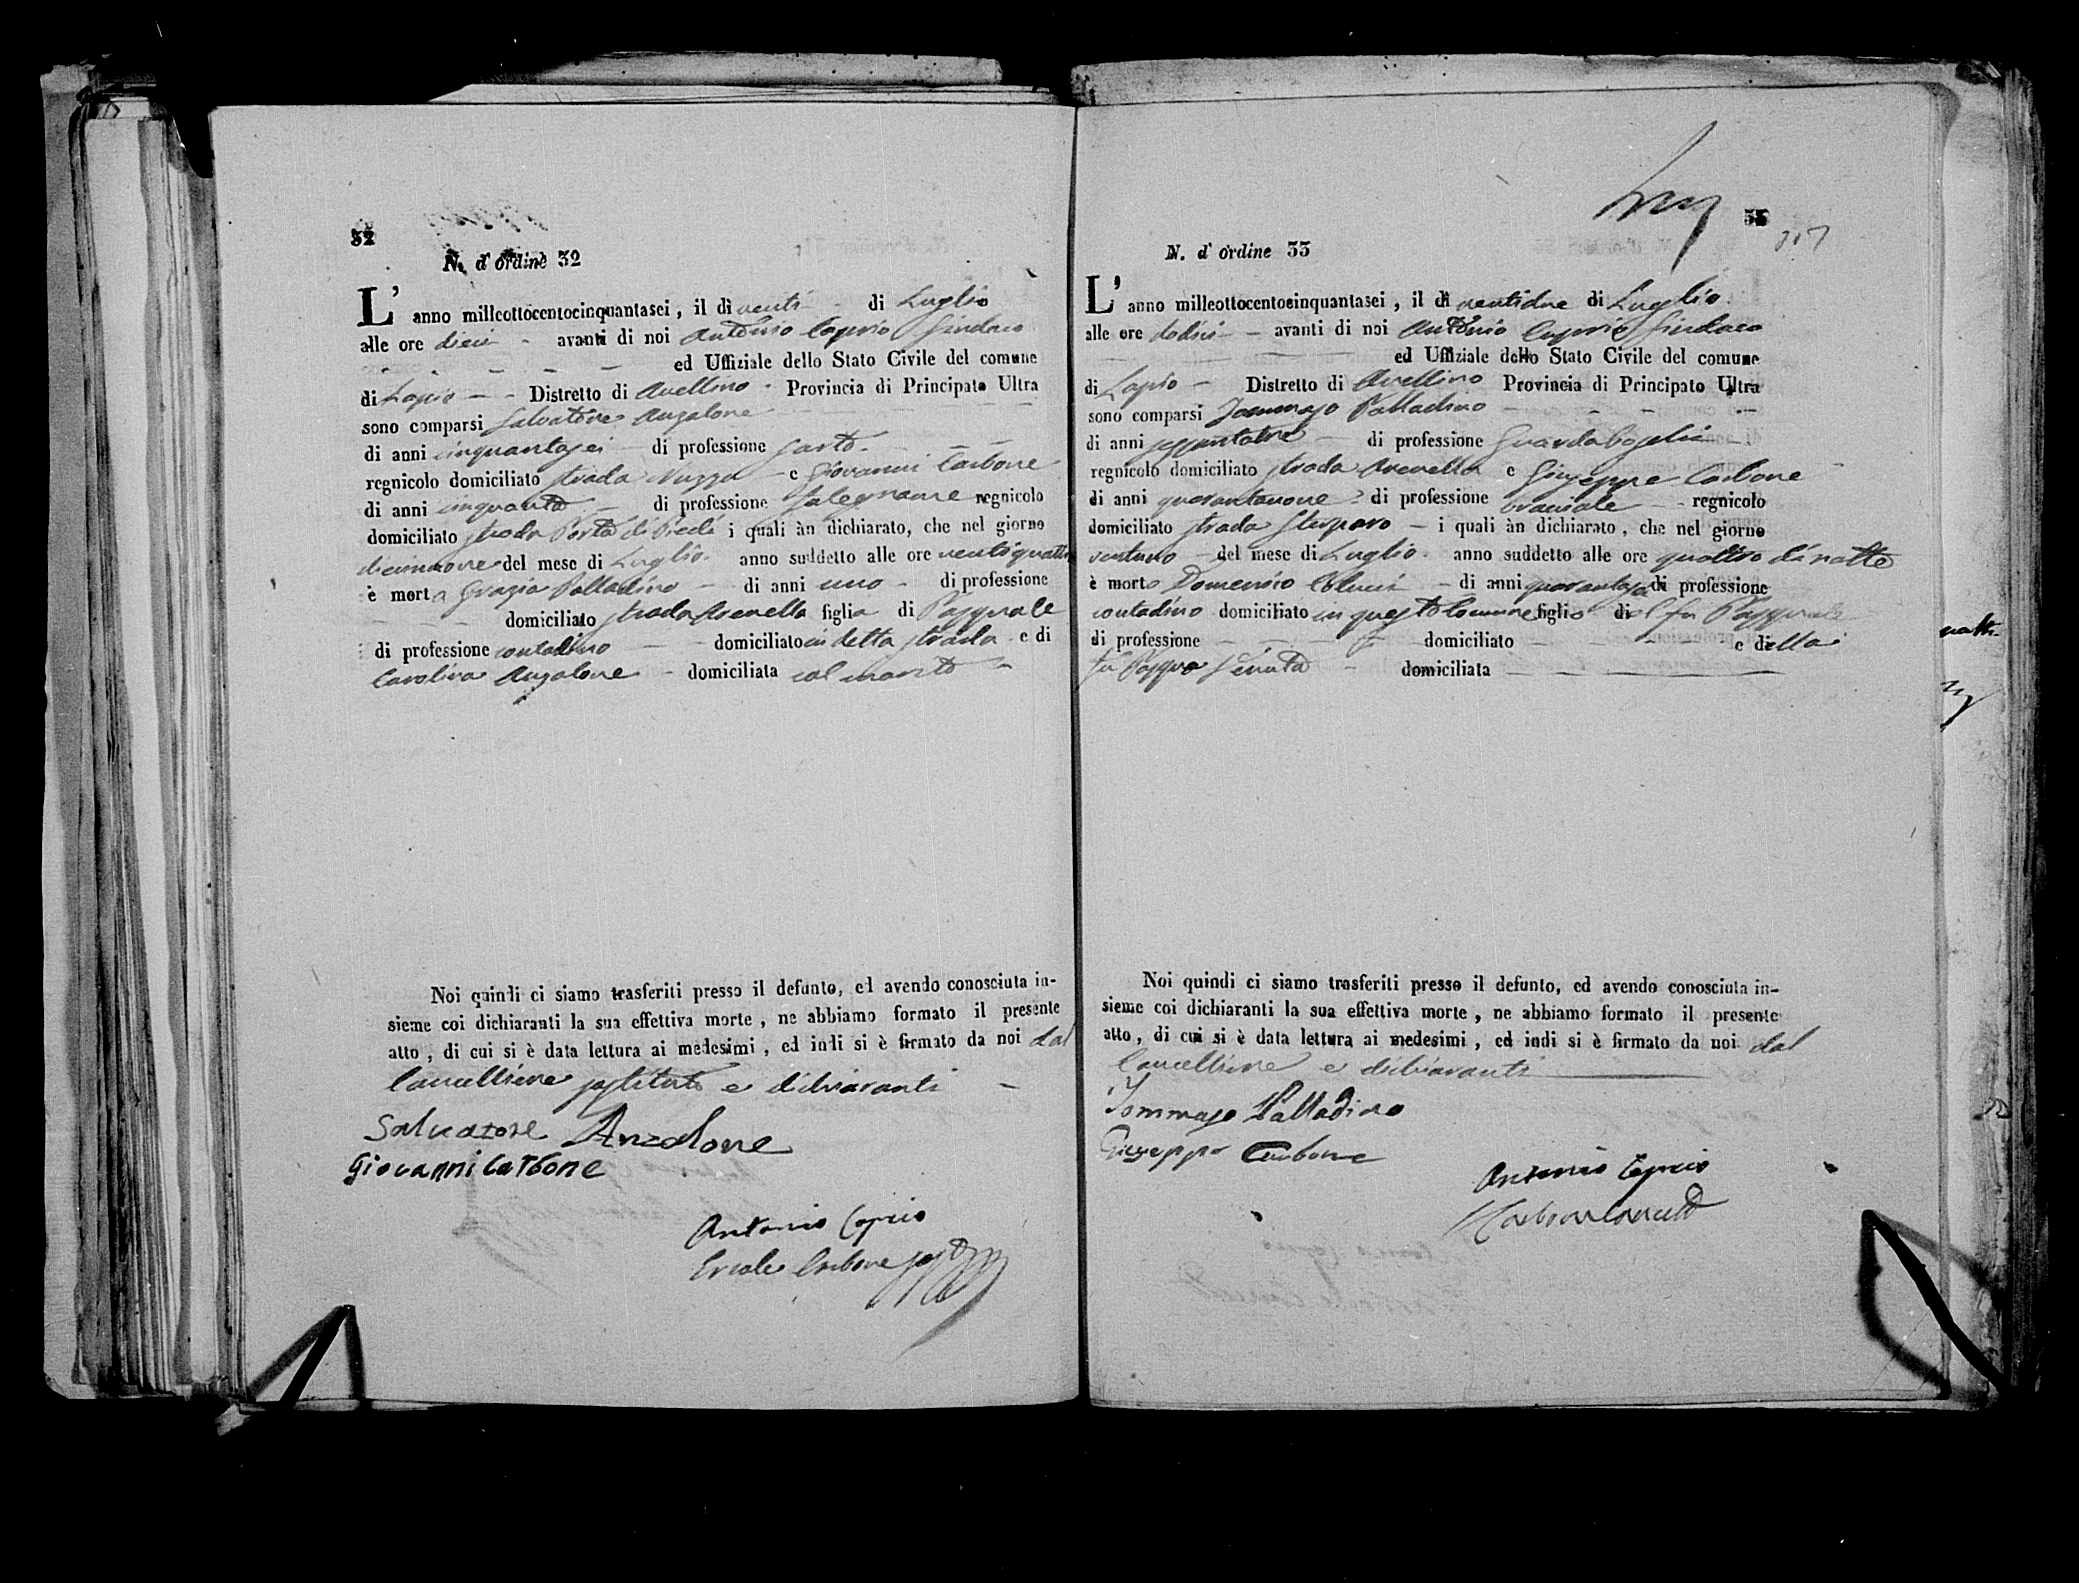 32
N. d' ordine 32
L' anno milleottocentocinquantasei, il dì venti di Luglio
alle ore dieci avanti di noi Antonio Caprio Sindaco
ed Uffiziale dello Stato Civile del comune
di Lapio Distretto di Avellino Provincia di Principato Ultra
sono comparsi Salvatore Anzalone
di anni cinquantasei di professione sarto
regnicolo domiciliato strada Nuzza e Giovanni Carbone
di anni cinquanta di professione falegname regnicolo
domiciliato strada Porta di Piedi i quali àn dichiarato, che nel giorno
diciannove del mese di Luglio anno suddetto alle ore ventiquattro
è morta Grazia Palladino di anni uno di professione
domiciliato strada Arenella figlia di Pasquale
di professione contadino domiciliato in detta strada e di
Carolina Anzalone domiciliata col marito
Noi quindi ci siamo trasferiti presso il defunto, ed avendo conosciuta in-
sieme coi dichiaranti la sua effettiva morte, ne abbiamo formato il presente
atto, di cui si è data lettura ai medesimi, ed indi si è firmato da noi dal
Cancelliere sostituto e dichiaranti
Salvatore Anzalone
Giovanni Carbone
Antonio Caprio
Ercole Carbone
33
317
N. d' ordine 33
L' anno milleottocentocinquantasei, il dì ventidue di Luglio
alle ore dodici avanti di noi Antonio Caprio Sindaco
ed Uffiziale dello Stato Civile del comune
di Lapio Distretto di Avellino Provincia di Principato Ultra
sono comparsi Tommaso Palladino
di anni sessantatre di professione Guardaboschi
regnicolo domiciliato strada Arenella e Giuseppe Carbone
di anni quarantanove di professione bracciale regnicolo
domiciliato strada i quali àn dichiarato, che nel giorno
ventuno del mese di Luglio anno suddetto alle ore quattro di notte
è morto Domenico Colucci di anni quarantasei di professione
contadino domiciliato in questo Comune figlio del fu Pasquale
di professione domiciliato e della
fu Pasqua domiciliata
Noi quindi ci siamo trasferiti presso il defunto, ed avendo conosciuta in-
sieme coi dichiaranti la sua effettiva morte, ne abbiamo formato il presente
atto, di cui si è data lettura ai medesimi, ed indi si è firmato da noi dal
Cancelliere e dichiaranti
Tommaso Palladino
Giuseppe Carbone
Antonio Caprio